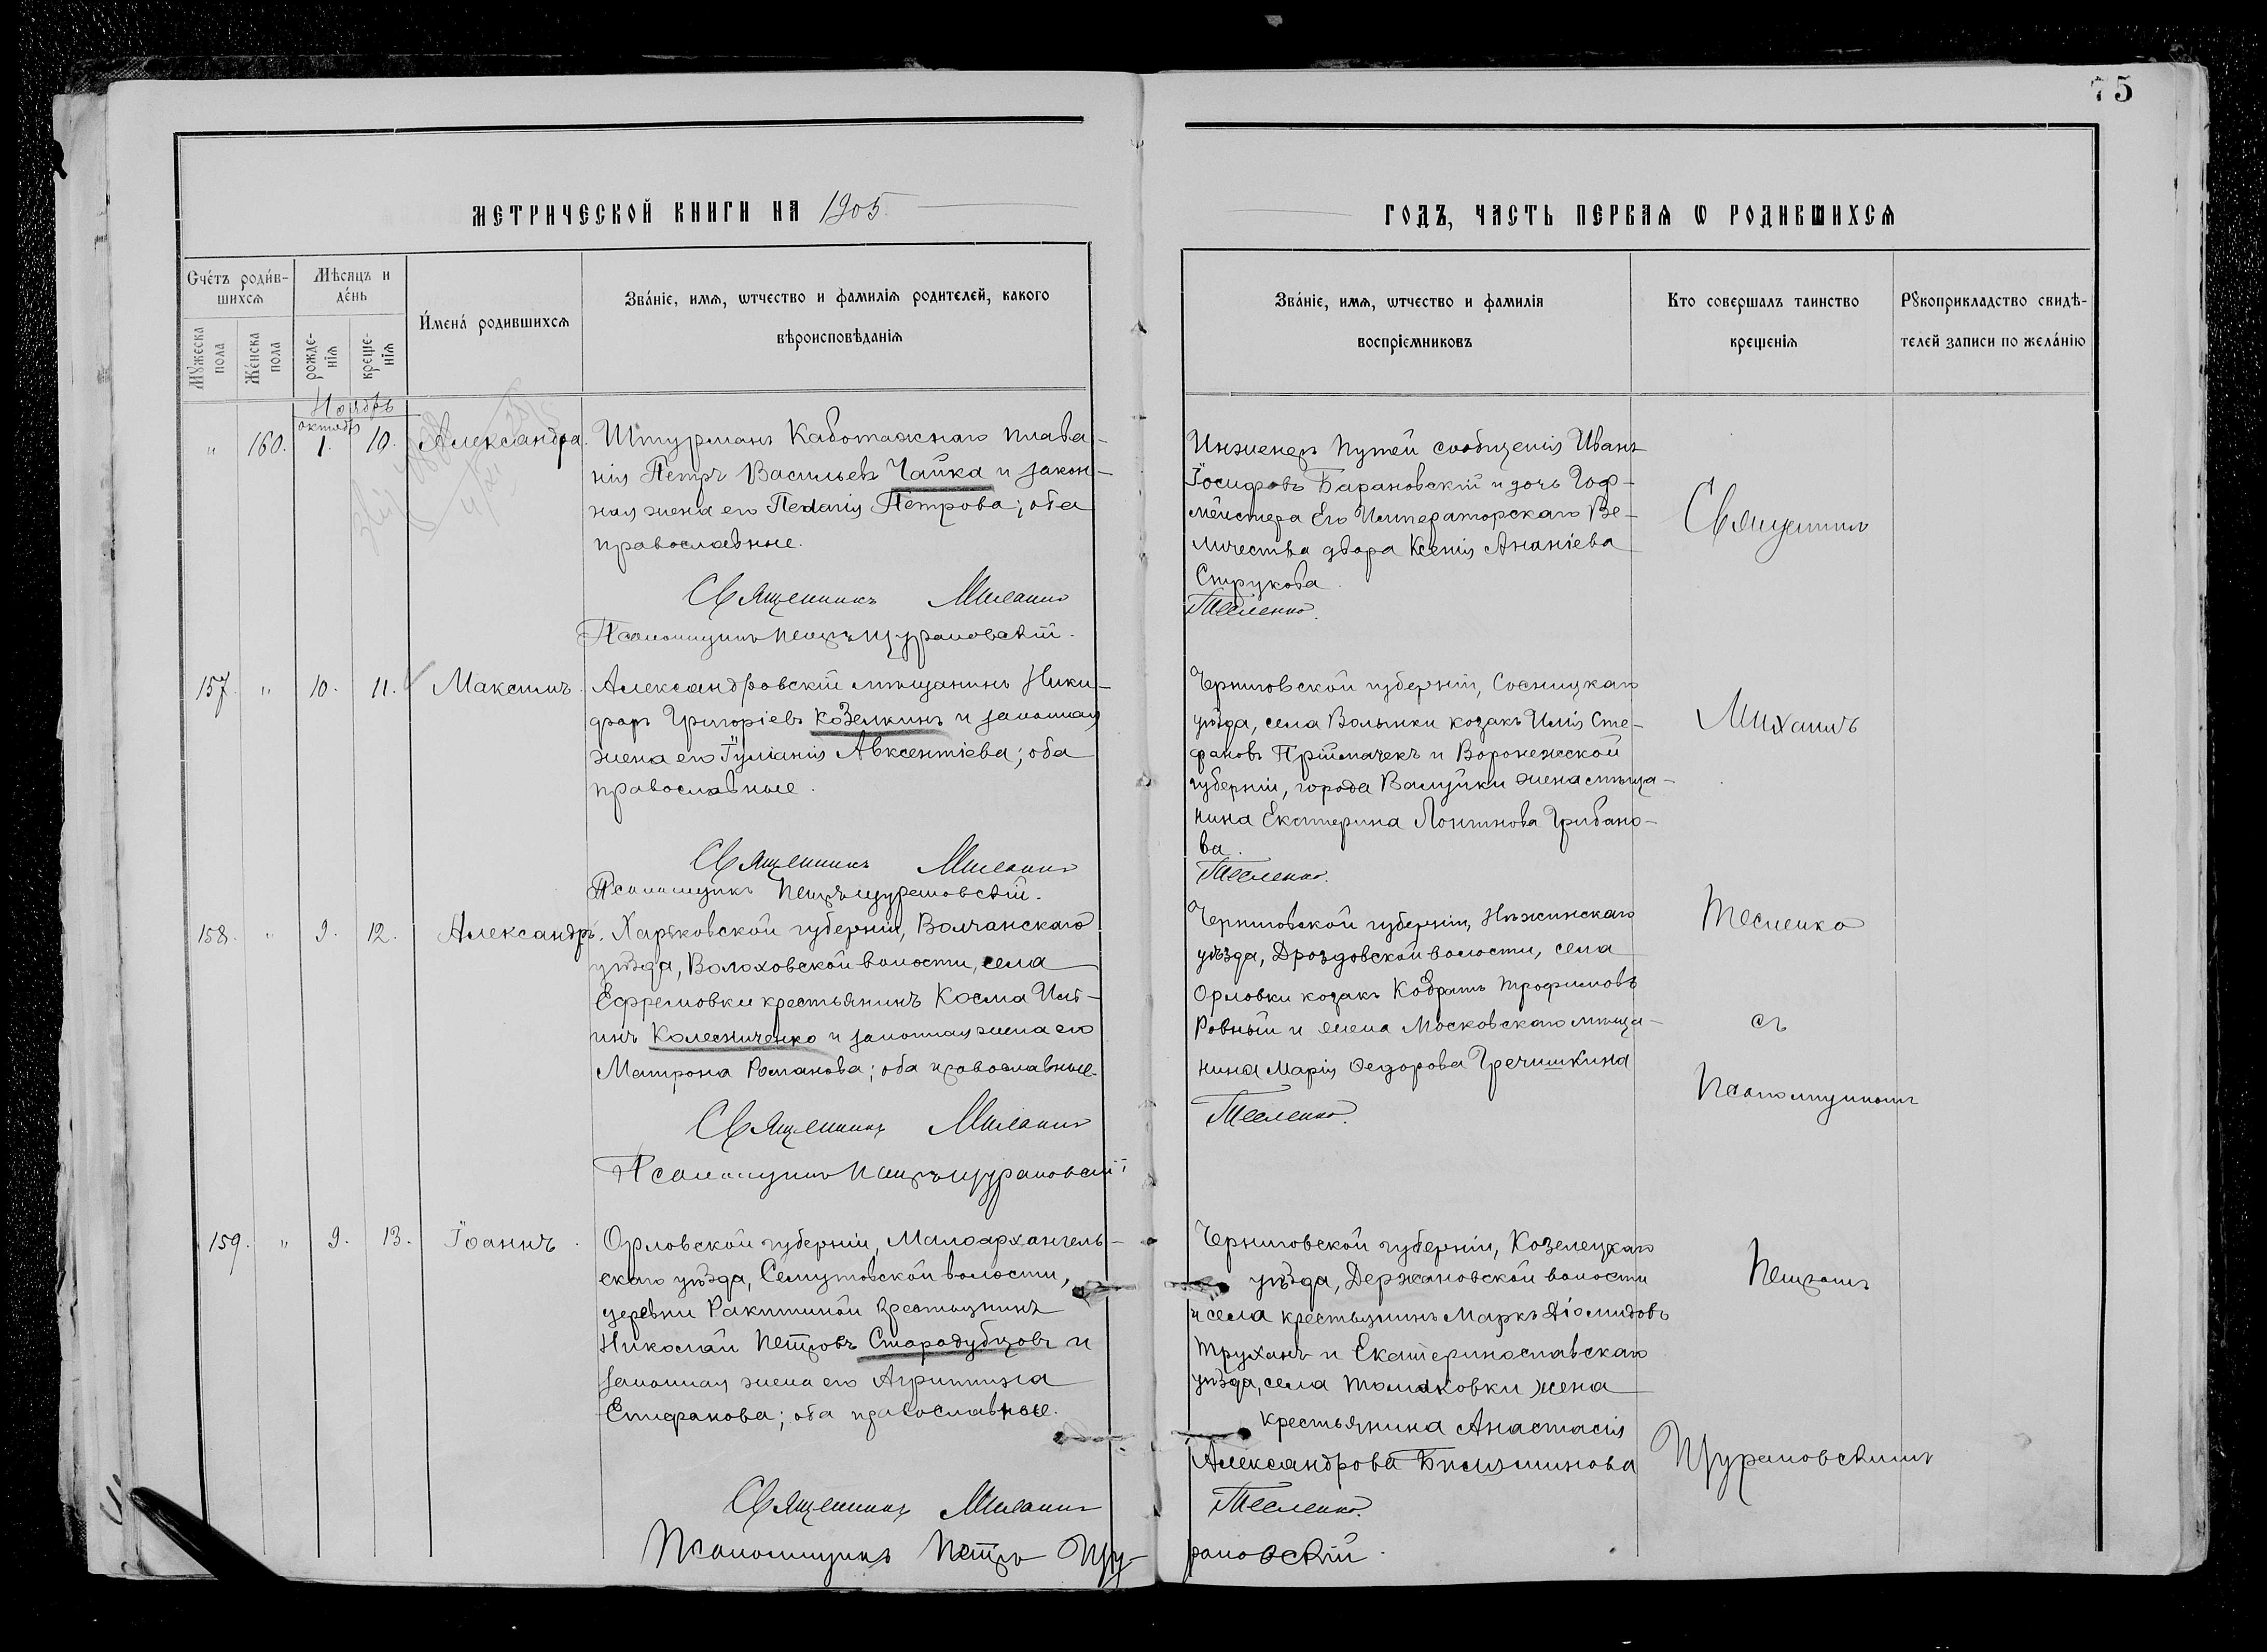 75
МЕТРИЧЕСКОЙ КНИГИ НА 1905
ГОДЪ, ЧАСТЬ ПЕРВАЯ Ѡ РОДИВШИХСЯ
Счéтъ роди́в-
шихсѧ
Мѣсяцъ и
дéнь
И́мена́ родившихсѧ
Зва́нїе, имѧ, ѡтчество и фамилїѧ родителей, какого
вѣроисповѣданїѧ
Мꙋ́жеска
пола
Же́нска
пола
рожде-
нїѧ
креще-
нїѧ
Зва́нїе, имѧ, ѡтчество и фамилїѧ
воспрїемниковъ
Кто совершалъ таинство
крещенїѧ
Рꙋкоприкладство свидѣ-
телей записи по жела́нїю
Ноябрь
октябр
" 160. 1. 10. Александра.
Штурманъ Каботажнаго плава-
нія Петръ Васильевъ Чайка и закон-
ная жена его Пелагія Петрова; оба
православные.
Священникъ
Псаломщикъ Петръ Щурановскій.
Инженеръ Путей сообщенія Иванъ
Іосифовъ Барановскій и дочь Гоф-
мейстера Его Императорскаго Ве-
личества двора Ксенія Ананіева
Струкова.
Тесленко.
157. " 10. 11. Максимъ.
Александровскій мѣщанинъ Ники-
форъ Григоріевъ Козелкинъ и законная
жена его Іуліанія Авксентіева; оба
православные.
Священникъ
Псаломщикъ Петръ Щурановскій.
Черниговской губерніи, Сосницкаго
уѣзда, села Волынки козакъ Илія Сте-
фановъ Пріймачекъ и Воронежской
губерніи, города Валуйки жена мѣща-
нина Екатерина Лонгинова Грибано-
ва.
Тесленко.
158. " 9. 12. Александръ.
Харьковской губерніи, Волчанскаго
уѣзда, Волоховской волости, села
Ефремовки крестьянинъ Косма Иль-
инъ Колесниченко и законная жена его
Матрона Романова; оба православные.
Священникъ
Псаломщикъ Петръ Щурановскій
Черниговской губерніи, Нѣжинскаго
уѣзда, Дроздовской волости, села
Орловки козакъ Кодратъ Трофимовъ
Ровный и жена Московскаго мѣща-
нина Марія Ѳедорова Гречишкина
Тесленко.
159. " 9. 13. Іоаннъ.
Орловской губерніи, Малоархангель-
скаго уѣзда, волости,
деревни Ракитиной крестьянинъ
Николай Петровъ Стародубцовъ и
законная жена его Агриппина
Епифанова; оба православные.
Священникъ
Псаломщикъ Петръ Щу-
рановскій.
Черниговской губерніи, Козелецкаго
уѣзда, Держановской волости
и села крестьянинъ Маркъ Діомидовъ
Труханъ и Екатеринославскаго
уѣзда, села Томаковки жена
крестьянина Анастасія
Александрова
Тесленко.
Священникъ
Михаилъ
Тесленко
съ
Псаломщикомъ
Петромъ
Щурановскимъ